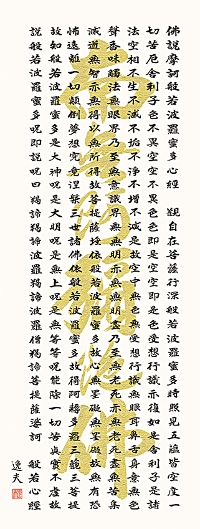 佛說摩訶般若波羅蜜多心經 觀自在菩薩行深般若波羅蜜多時照見五蘊皆空度一
切苦厄舍利子色不異空空不異色色即是空空即是色受想行識亦復如是舍利子是諸
法空相不生不滅不垢不淨不增不減是故空中無色無受想行識無眼耳鼻舌身意無色
聲香味觸法無眼界乃至無意識界無無明亦無無明盡乃至無老死亦無老死盡無苦集
滅道無智亦無得以無所得故菩提薩埵依般若波羅蜜多故心無罣礙無罣礙故無有恐
怖遠離一切顛倒夢想究竟涅槃三世諸佛依般若波羅蜜多故得阿耨多羅三藐三菩提
故知般若波羅蜜多是大神呪是大明呪是無上呪是無等等呪能除一切苦真實不虛故
說般若波羅蜜多呪即說呪曰 羯諦羯諦波羅羯諦波羅僧羯諦菩提薩婆訶 般若心經
逸夫
南無阿彌陀佛